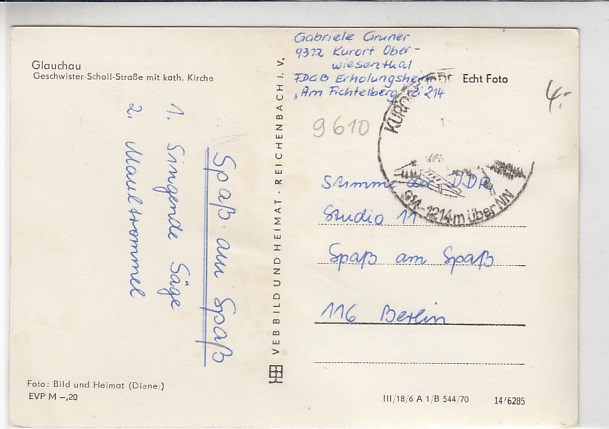 Glauchau
Geschwister-Scholl-Straße mit kath. Kirche
Spaß am Spaß
1. Singende Säge
2. Maultrommel
Foto: Bild und Heimat (Diener)
EVP M -,20
VEB BILD UND HEIMAT · REICHENBACH i. V.
Gabriele Gruner
9372 Kurort Ober-
wiesenthal
FDGB Erholungsheim
"Am Fichtelberg" Zi 214
Echt Foto
4,-
9610
914-1214m über NN
Stimme der DDR
Studio 11
Spaß am Spaß
116 Berlin
III/18/6 A 1/B 544/70
14/6285